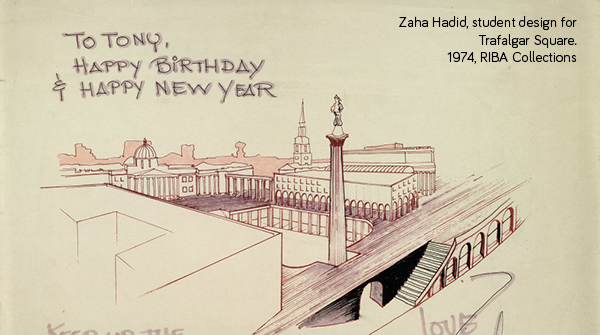 Zaha Hadid, student design for
Trafalgar Square.
1974, RIBA Collections
TO TONY,
HAPPY BiRTHDAY
& HAPPY NEW YEAR
KEEP UP THE
love